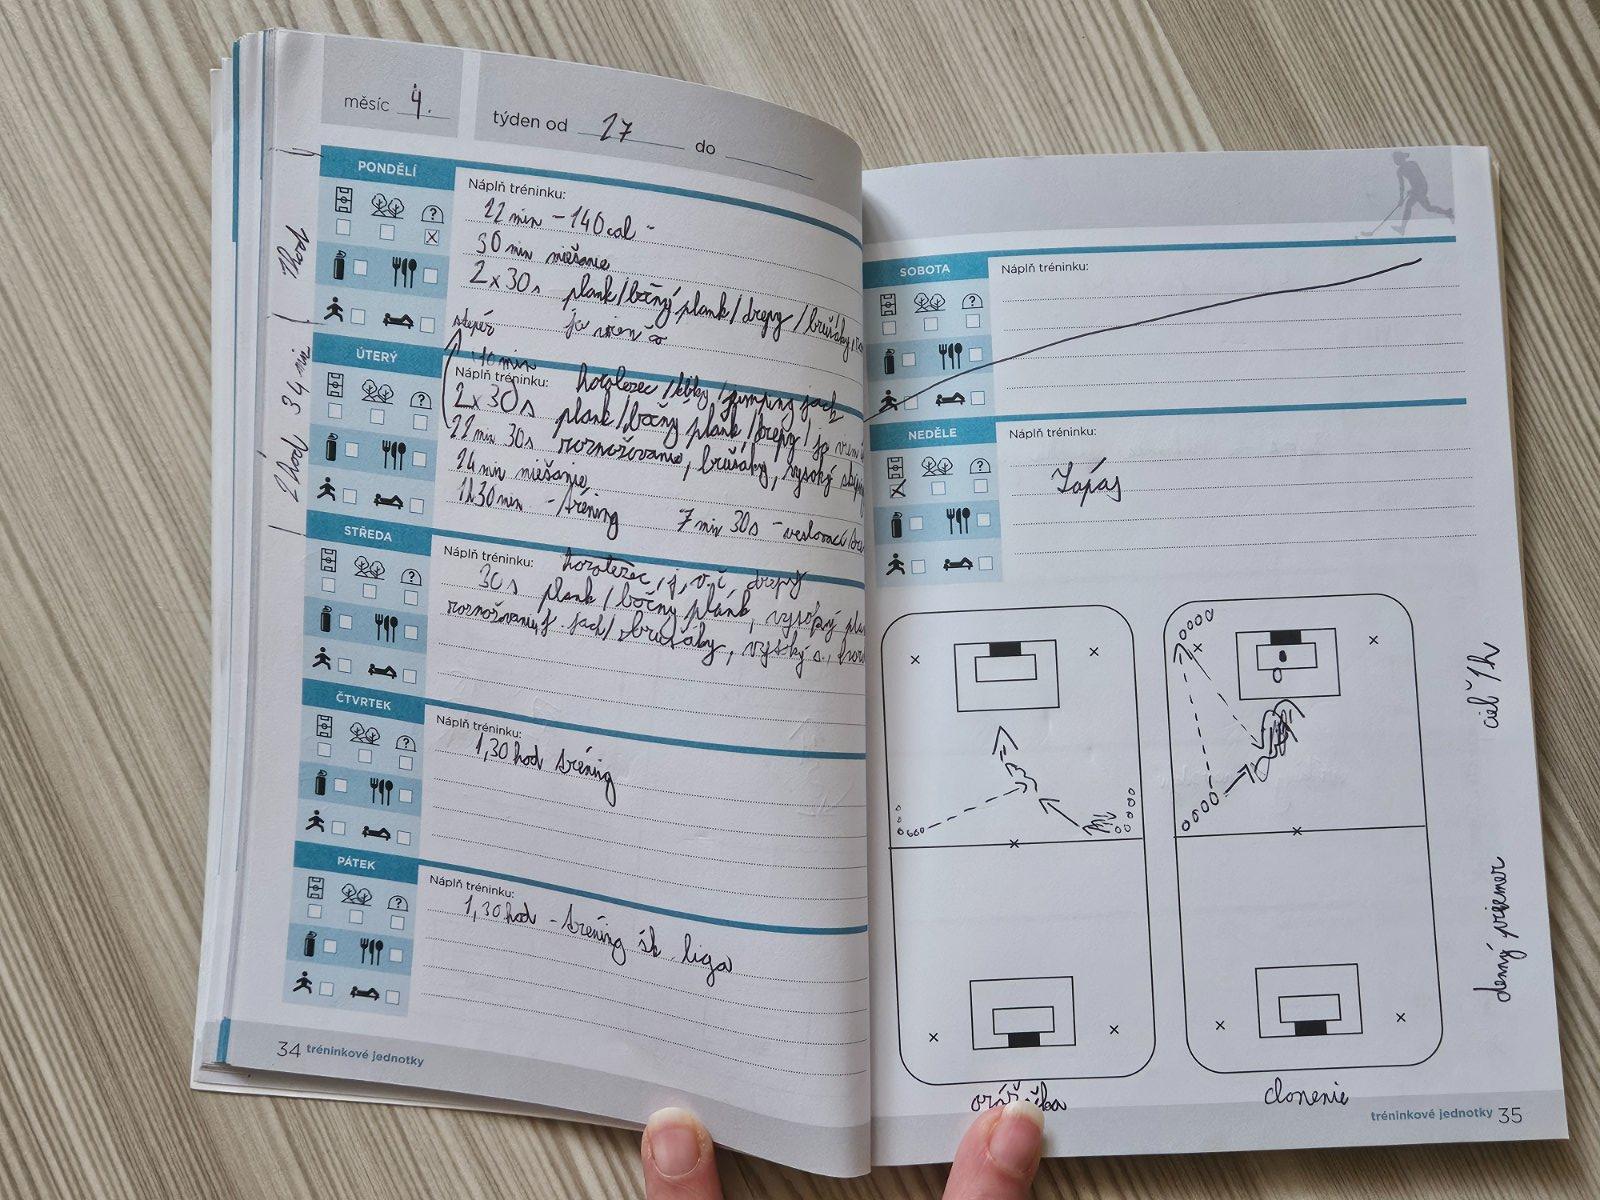 měsíc 4.
týden od 17 do
PONDĚLÍ
Náplň tréninku:
22 min - 140 cal -
30 min miešanie
2x30s plank/bočný plank/drepy/brušáky
stepér
1hod
ÚTERÝ
10 min
Náplň tréninku:
horolezec/kliky/jumping jack
2x30s plank/bočný plank/drepy/
22 min 30s roznožovanie, brušáky, vysoký
24 min miešanie
1h30min - tréning 7 min 30s - veslovací
2 hod 34 min
STŘEDA
Náplň tréninku:
horolezec, j, v, č, drepy
30s plank/bočný plank, vysoký
roznožovanie/j. jack/brušáky, vysoký s.,
ČTVRTEK
Náplň tréninku:
1,30 hod tréning
PÁTEK
Náplň tréninku:
1,30 hod - tréning šk. liga
34 tréninkové jednotky
SOBOTA
Náplň tréninku:
NEDĚLE
Náplň tréninku:
Zápas
cieľ 1h
denný priemer
clonenie
tréninkové jednotky 35